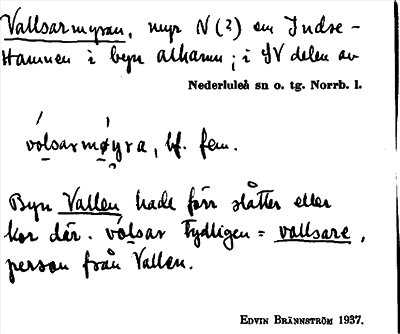 Vallsarmyran, myr N (?) om Indre-
Hamnen i byn Alhamn; i SV delen av
Nederluleå sn o. tg. Norrb. l.
vó̱lsarmǿ̱yra, bf. fem.
?
Byn Vallen hade förr slåtter eller
kor där. vó̱lsar tydligen = vallsare,
person från Vallen.
EDVIN BRÄNNSTRÖM 1937.